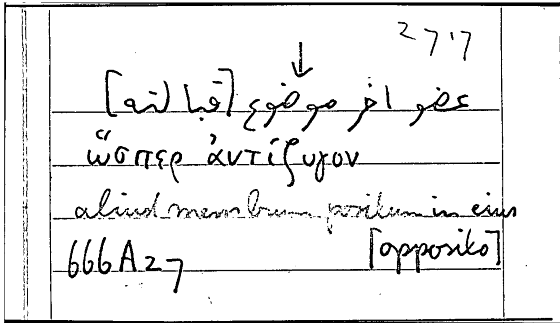 عضو اخر موضوع [قبالته]
ὥσπερ ἀντίζυγον
aliud membrum positum in eius
666A27 [opposito]